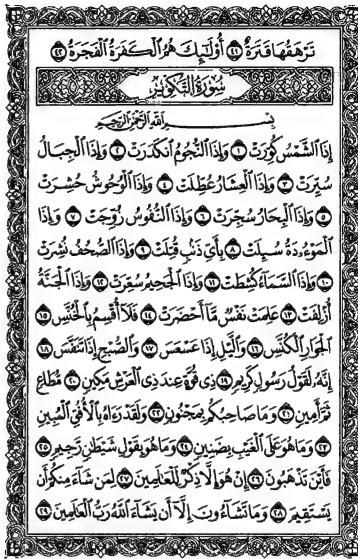 تَرْهَقُهَا قَتَرَةٌ ٤١ أُوْلَٰٓئِكَ هُمُ ٱلْكَفَرَةُ ٱلْفَجَرَةُ ٤٢
سُورَةُ التَّكْوِيرِ
بِسْمِ ٱللَّهِ ٱلرَّحْمَٰنِ ٱلرَّحِيمِ
إِذَا ٱلشَّمْسُ كُوِّرَتْ ١ وَإِذَا ٱلنُّجُومُ ٱنكَدَرَتْ ٢ وَإِذَا ٱلْجِبَالُ
سُيِّرَتْ ٣ وَإِذَا ٱلْعِشَارُ عُطِّلَتْ ٤ وَإِذَا ٱلْوُحُوشُ حُشِرَتْ
٥ وَإِذَا ٱلْبِحَارُ سُجِّرَتْ ٦ وَإِذَا ٱلنُّفُوسُ زُوِّجَتْ ٧ وَإِذَا
ٱلْمَوْءُۥدَةُ سُئِلَتْ ٨ بِأَيِّ ذَنۢبٍ قُتِلَتْ ٩ وَإِذَا ٱلصُّحُفُ نُشِرَتْ
١٠ وَإِذَا ٱلسَّمَآءُ كُشِطَتْ ١١ وَإِذَا ٱلْجَحِيمُ سُعِّرَتْ ١٢ وَإِذَا ٱلْجَنَّةُ
أُزْلِفَتْ ١٣ عَلِمَتْ نَفْسٌ مَّآ أَحْضَرَتْ ١٤ فَلَآ أُقْسِمُ بِٱلْخُنَّسِ ١٥
ٱلْجَوَارِ ٱلْكُنَّسِ ١٦ وَٱلَّيْلِ إِذَا عَسْعَسَ ١٧ وَٱلصُّبْحِ إِذَا تَنَفَّسَ ١٨
إِنَّهُۥ لَقَوْلُ رَسُولٍ كَرِيمٍ ١٩ ذِي قُوَّةٍ عِندَ ذِي ٱلْعَرْشِ مَكِينٍ ٢٠ مُّطَاعٍ
ثَمَّ أَمِينٍ ٢١ وَمَا صَاحِبُكُم بِمَجْنُونٍ ٢٢ وَلَقَدْ رَءَاهُ بِٱلْأُفُقِ ٱلْمُبِينِ
٢٣ وَمَا هُوَ عَلَى ٱلْغَيْبِ بِضَنِينٍ ٢٤ وَمَا هُوَ بِقَوْلِ شَيْطَٰنٍ رَّجِيمٍ ٢٥
فَأَيْنَ تَذْهَبُونَ ٢٦ إِنْ هُوَ إِلَّا ذِكْرٌ لِّلْعَٰلَمِينَ ٢٧ لِمَن شَآءَ مِنكُمْ أَن
يَسْتَقِيمَ ٢٨ وَمَا تَشَآءُونَ إِلَّآ أَن يَشَآءَ ٱللَّهُ رَبُّ ٱلْعَٰلَمِينَ ٢٩